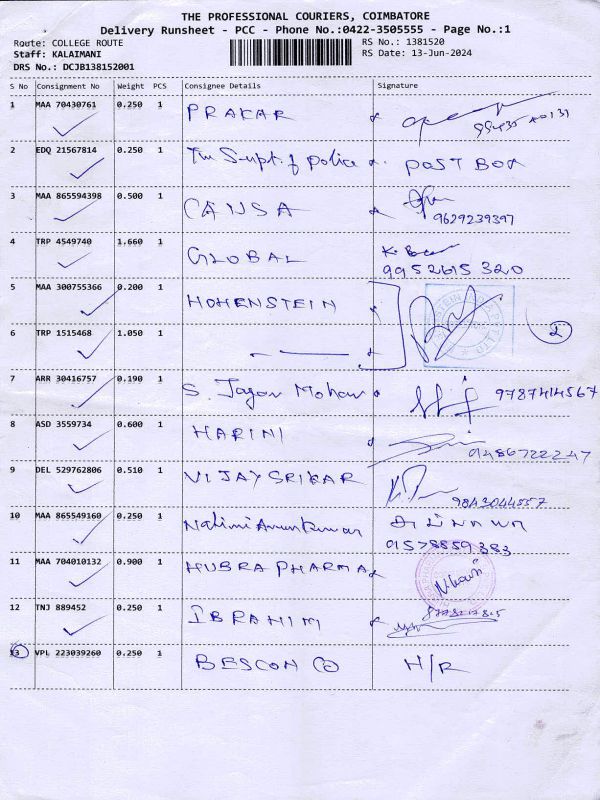 THE PROFESSIONAL COURIERS, COIMBATORE
Delivery Runsheet - PCC - Phone No.:0422-3505555 - Page No.:1
Route: COLLEGE ROUTE RS No.: 1381520
Staff: KALAIMANI RS Date: 13-Jun-2024
DRS No.: DCJB138152001
S No Consignment No Weight PCS Consignee Details Signature
1 MAA 70430761 0.250 1 PRAKAR
2 EDQ 21567814 0.250 1 The Supt. of police POST BOX
3 MAA 865594398 0.500 1 CANSA
9629239397
4 TRP 4549740 1.660 1 GLOBAL
9952615320
5 MAA 300755366 0.200 1 HOHENSTEIN
2
6 TRP 1515468 1.050 1
7 ARR 30416757 0.190 1 S. Jagan Mohan 9787414567
8 ASD 3559734 0.600 1 HARINI
01486722247
9 DEL 529762806 0.510 1 VIJAY SRIKAR
9843044557
10 MAA 865549160 0.250 1 Arunkumar
01578559383
11 MAA 704010132 0.900 1 HUBRA PHARMA
12 TNJ 889452 0.250 1 IBRAHIM
13 VPL 223039260 0.250 1 BESCON H/R